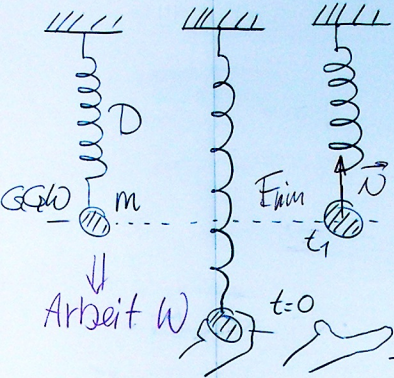 D
GGW
m
Ekin
v
t₁
Arbeit W
t=0